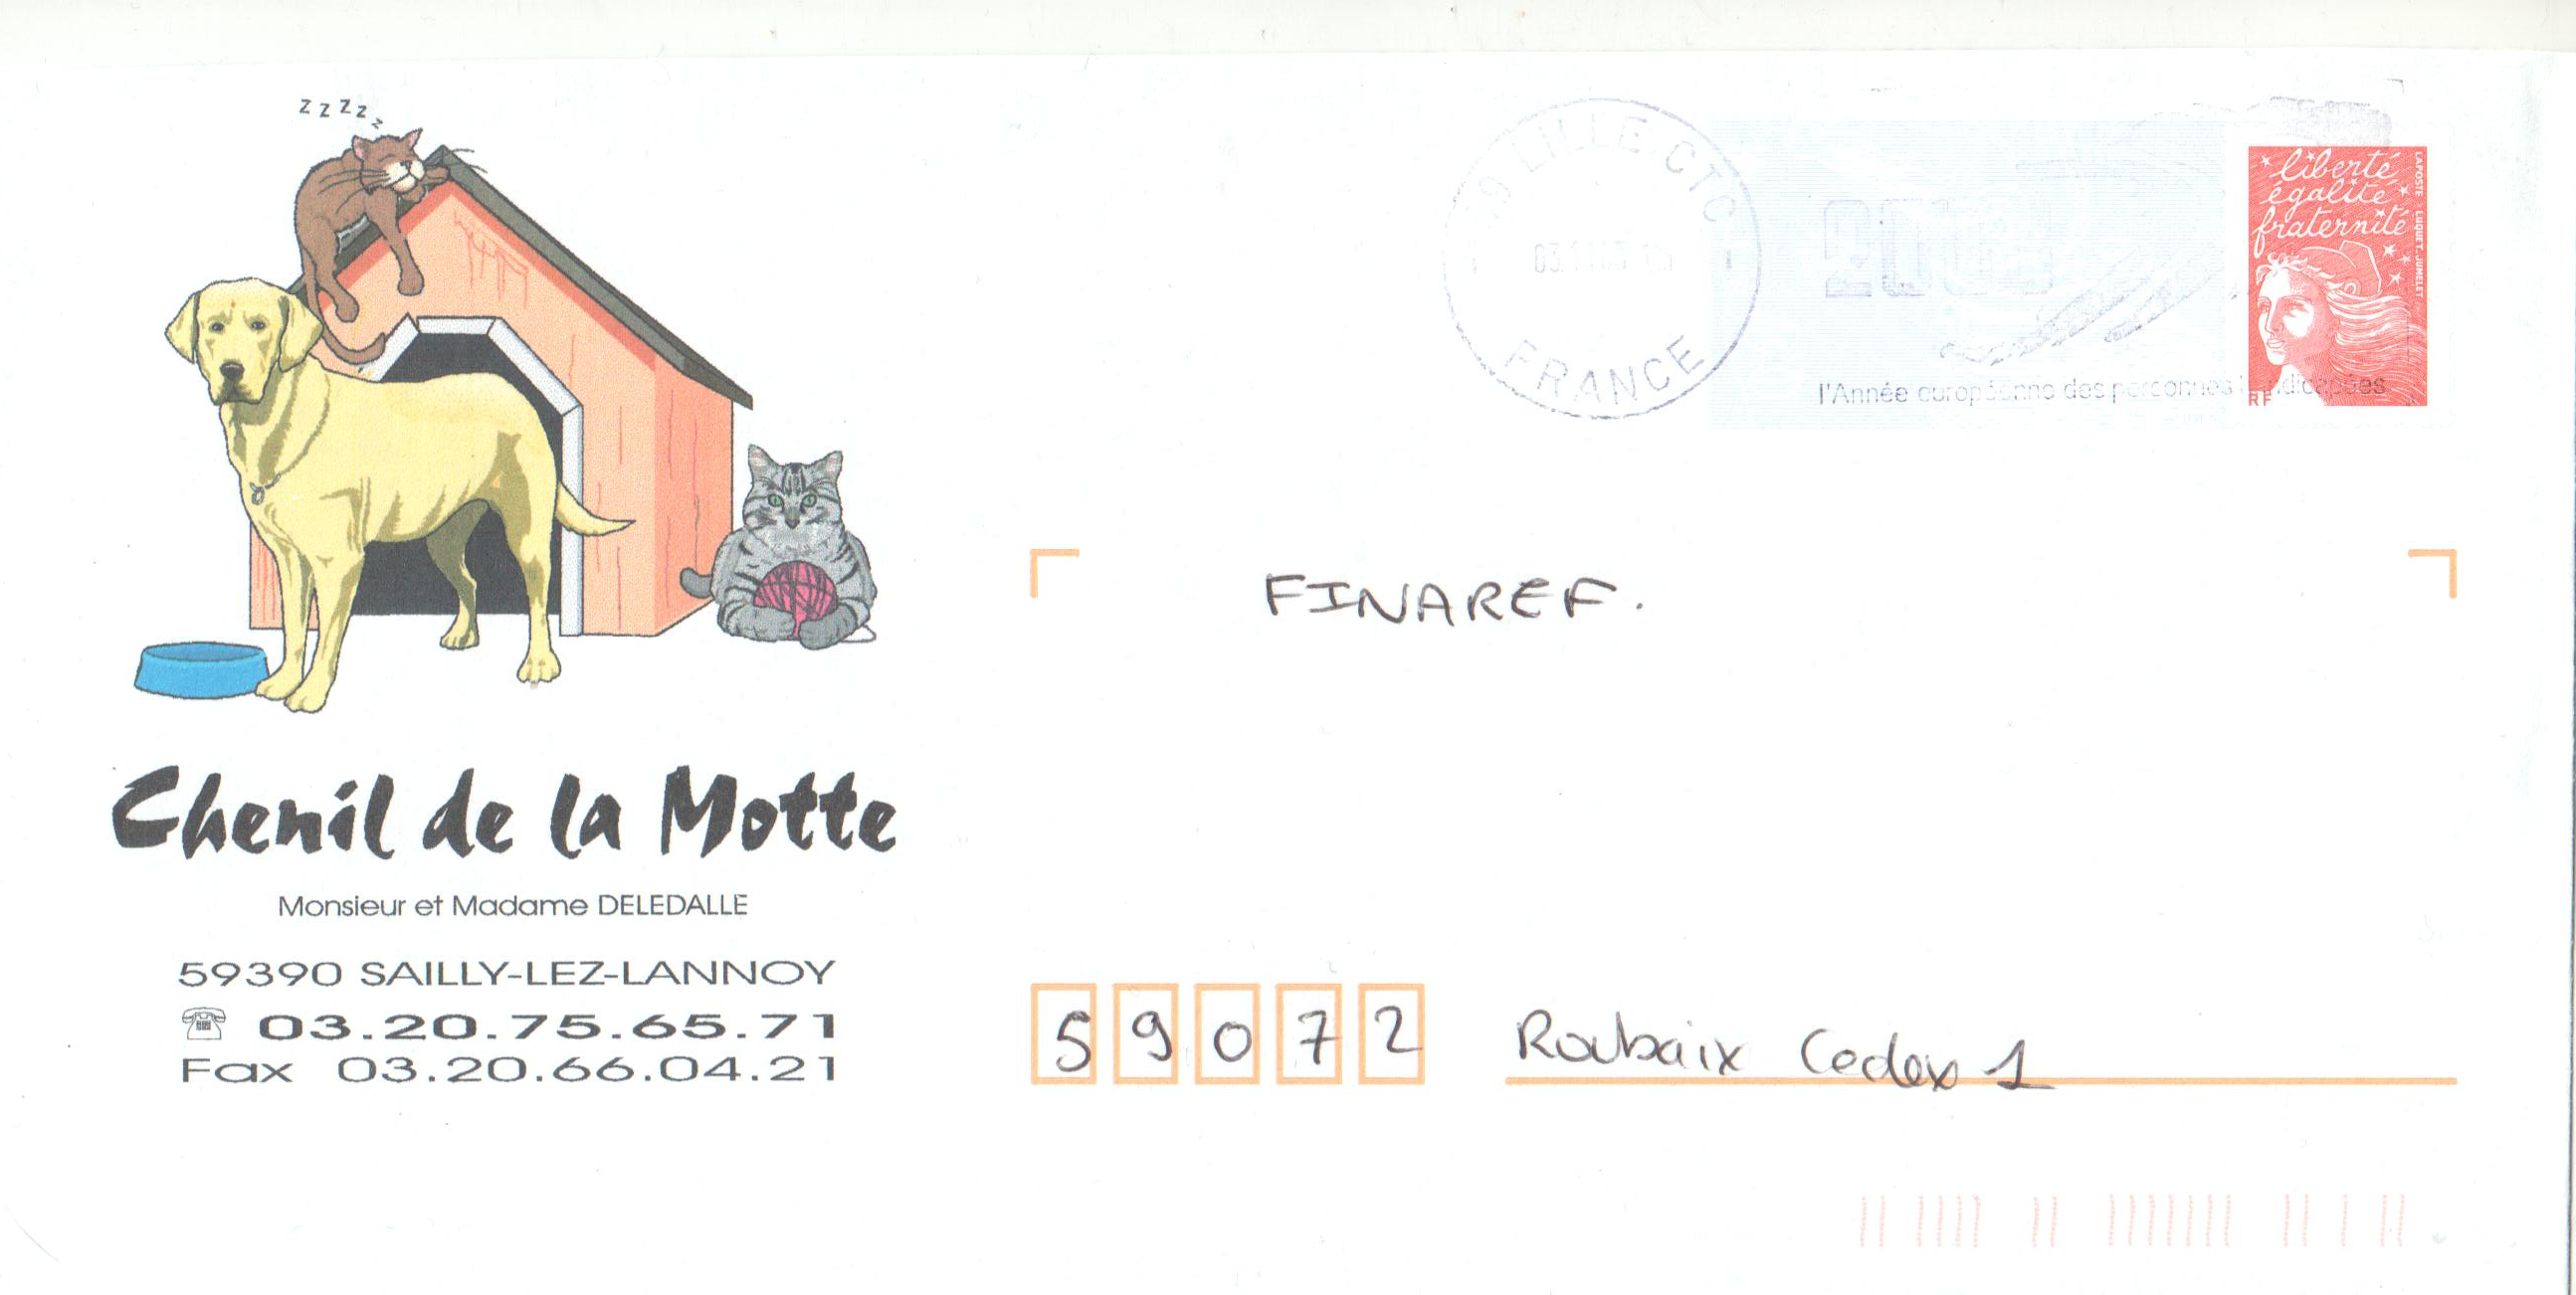 zzzzz
Chenil de la Motte
Monsieur et Madame DELEDALLE
59390 SAILLY-LEZ-LANNOY
03.20.75.65.71
Fax 03.20.66.04.21
59 LILLE CTC
FRANCE
l'Année européenne des personnes handicapées
liberté
égalité
fraternité
LA POSTE LUQUET. JUMELET
RF
FINAREF.
59072 Roubaix Cedex 1